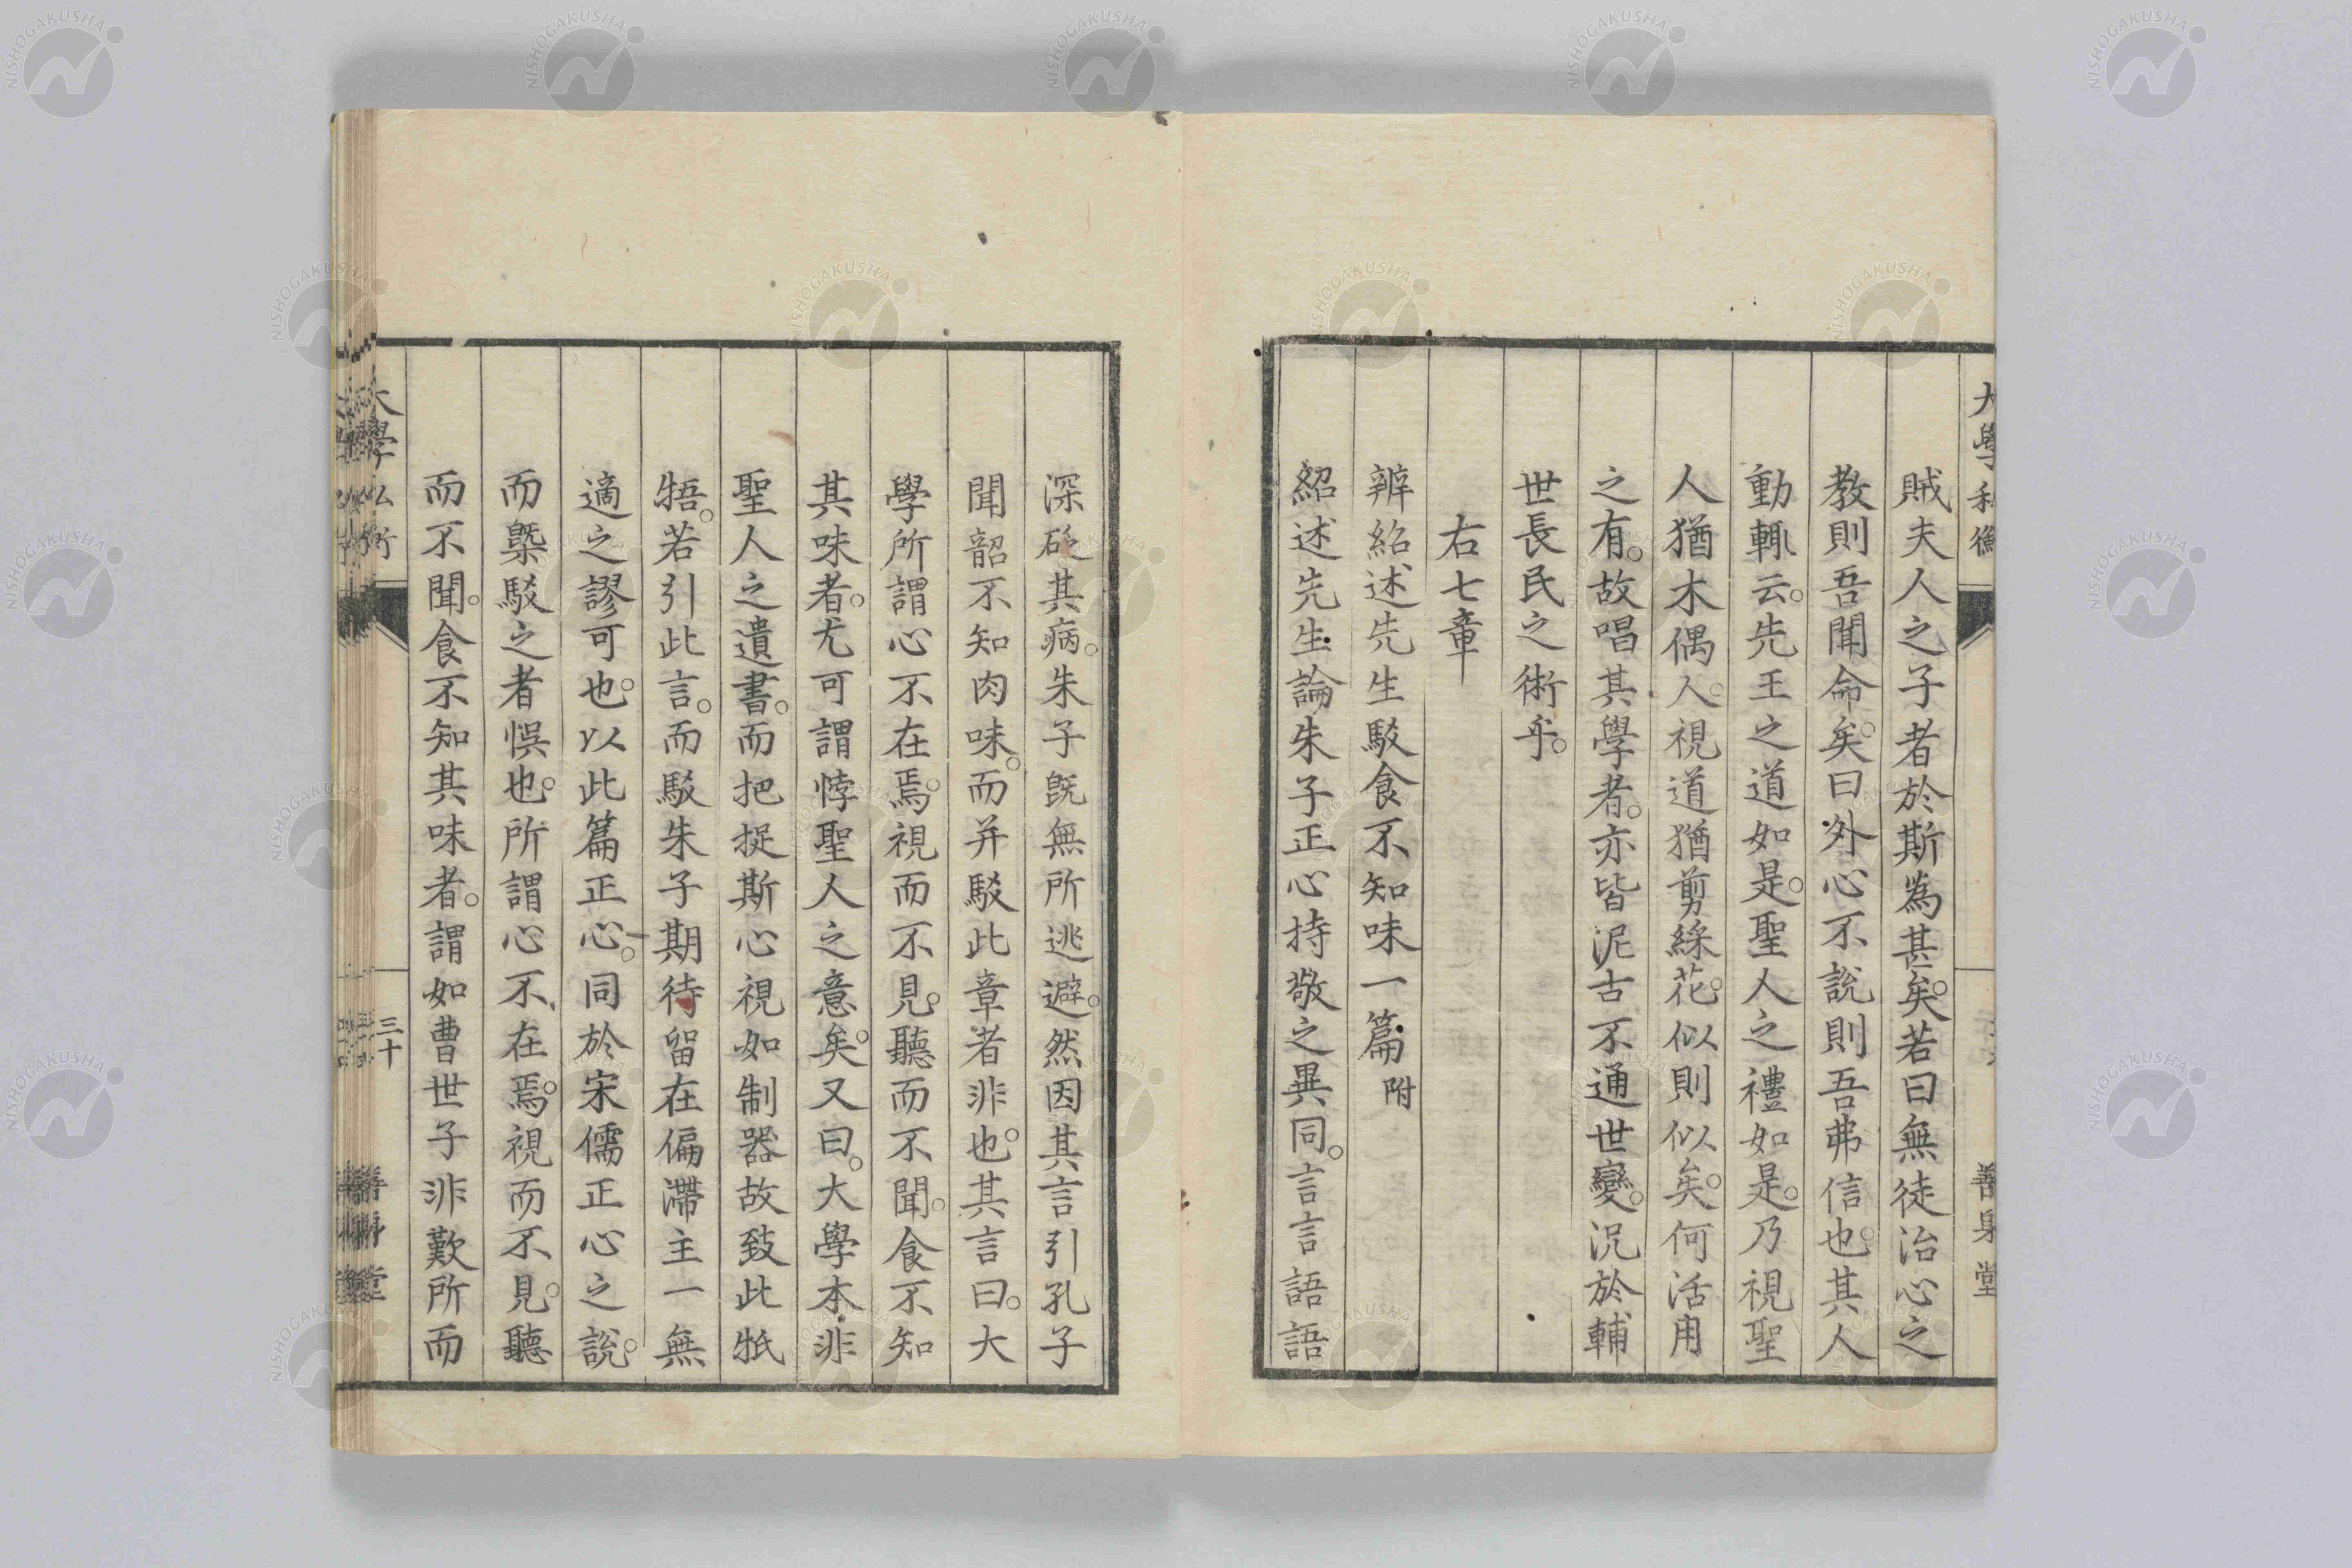 賊夫人之子者於斯為甚矣。若曰無徒治心之
教則吾聞命矣。曰外心不說則吾弗信也。其人
動輒云。先王之道如是。聖人之禮如是。乃視聖
人猶木偶人。視道猶剪綵花。似則似矣。何活用
之有。故唱其學者。亦皆泥古不通世變。況於輔
世長民之術乎。
右七章
辨紹述先生駁食不知味一篇附
紹述先生論朱子正心持敬之異同。言言語語
深砭其病。朱子既無所逃避。然因其言引孔子
聞韶不知肉味。而并駁此章者非也。其言曰。大
學所謂心不在焉。視而不見。聽而不聞。食不知
其味者。尤可謂悖聖人之意矣。又曰。大學本非
聖人之遺書。而把捉斯心視如制器故致此牴
牾。若引此言。而駁朱子期待留在偏滯主一無
適之謬可也。以此篇正心。同於宋儒正心之說。
而槩駁之者悞也。所謂心不在焉。視而不見。聽
而不聞。食不知其味者。謂如曹世子非歎所而
大學私衡
三十
善身堂
NISHOGAKUSHA